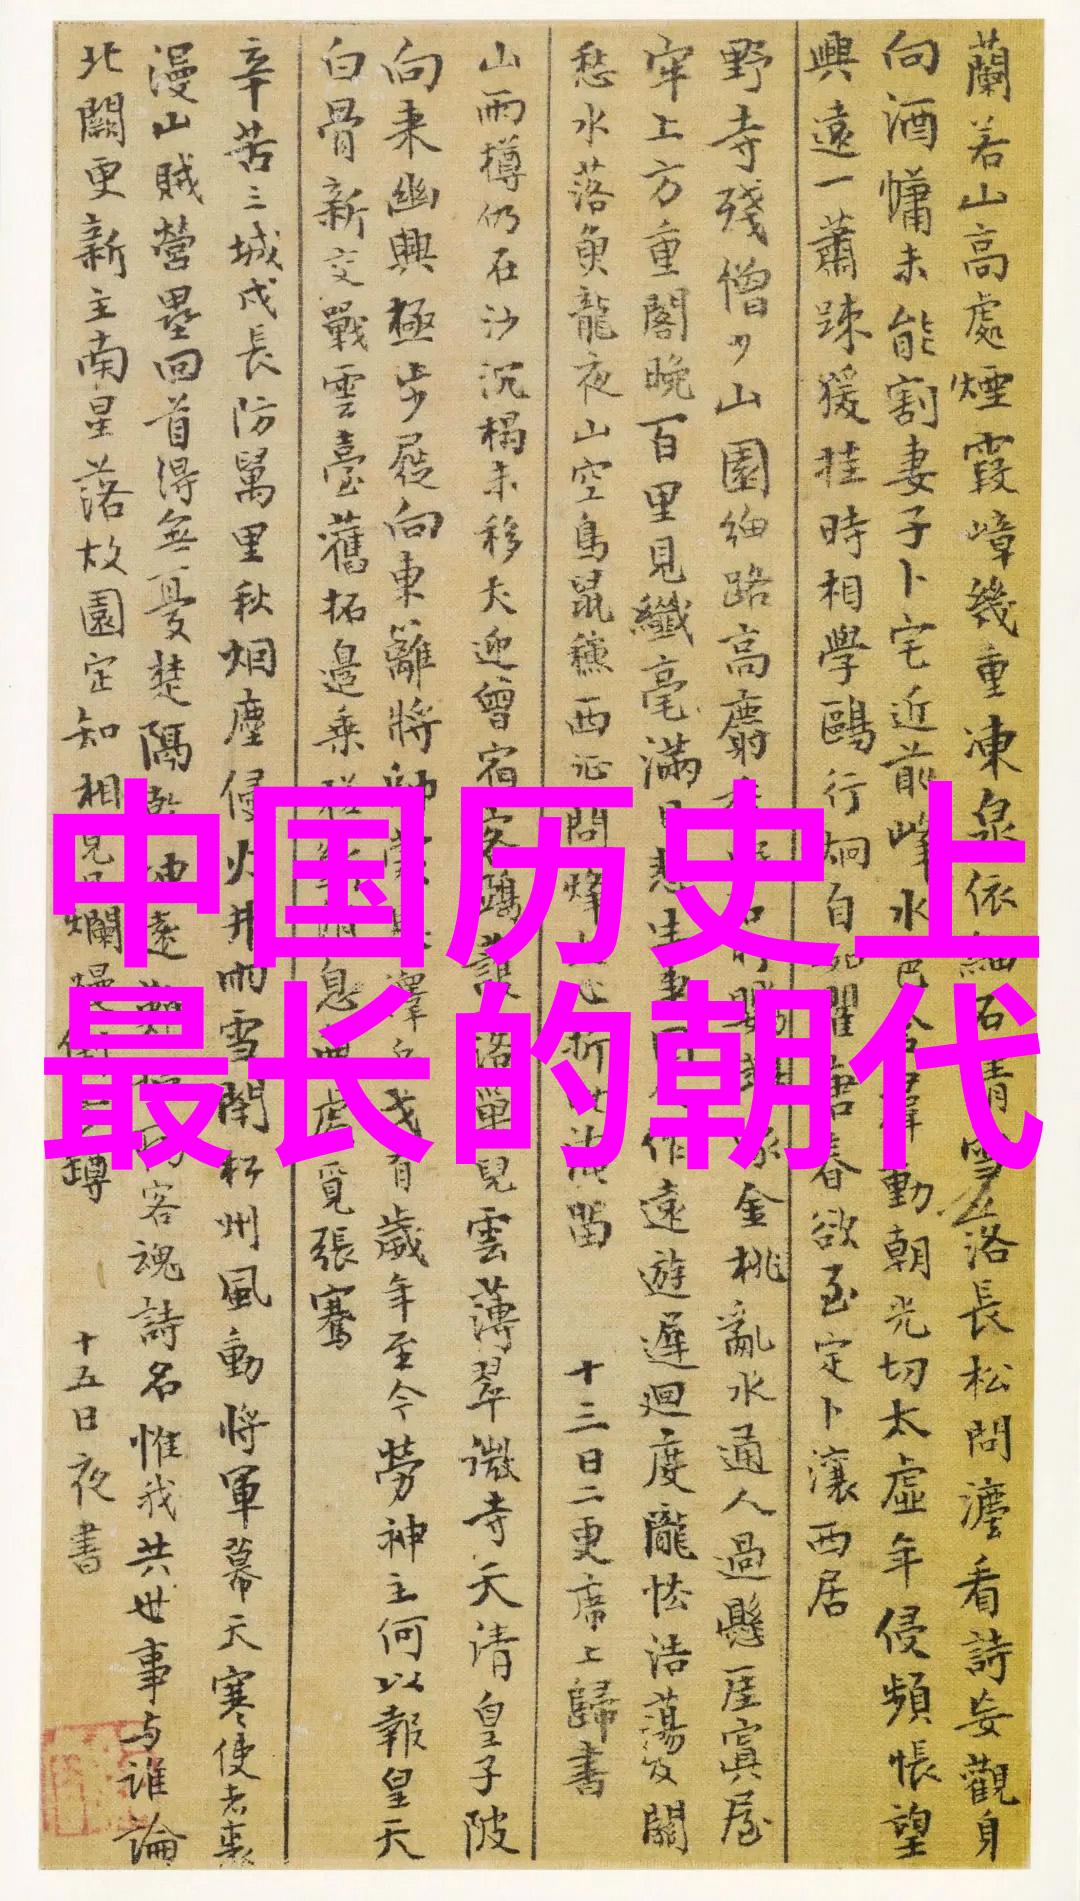 中国历史上
最长的朝代
蘭若山高處煙霞嶂幾重凍泉依細石晴雪落長松問灋看詩妄觀身
向酒慵未能割妻子卜宅近前峰水色動朝光切太虛年侵頻悵望
興遠一蕭踈猨挂時相學鷗行炯自唐春欲至定卜瀼西居
野寺殘僧少山園細路高麝金桃亂水通人過懸崖寘屋
牢上方重閣晚百里見纖毫滿目悲生事作遠遊遲迴度隴怯浩蕩及關
愁水落魚龍夜山空鳥鼠穐西征問烽折此淹留 十三日二更席上歸書
山雨樽仍在沙沉榻未移犬迎曾宿客鵶護落巢兒雲薄翠微寺天清皇子陂
向來幽興極步屧向東籬將動澤有歲年至今勞神主何以報皇天
白骨新交戰雲臺舊拓邊乘息虛覓張騫
辛苦三城戍長防萬里秋烟塵侵火井雨雪閉松州風動將軍幕天寒使者裘
漫山賊營壘回首得無憂楚隔乾坤遠客魂詩名惟我共世事与誰論
北闕更新主南星落故園定知相見日爛熳倒樽 十五日夜書